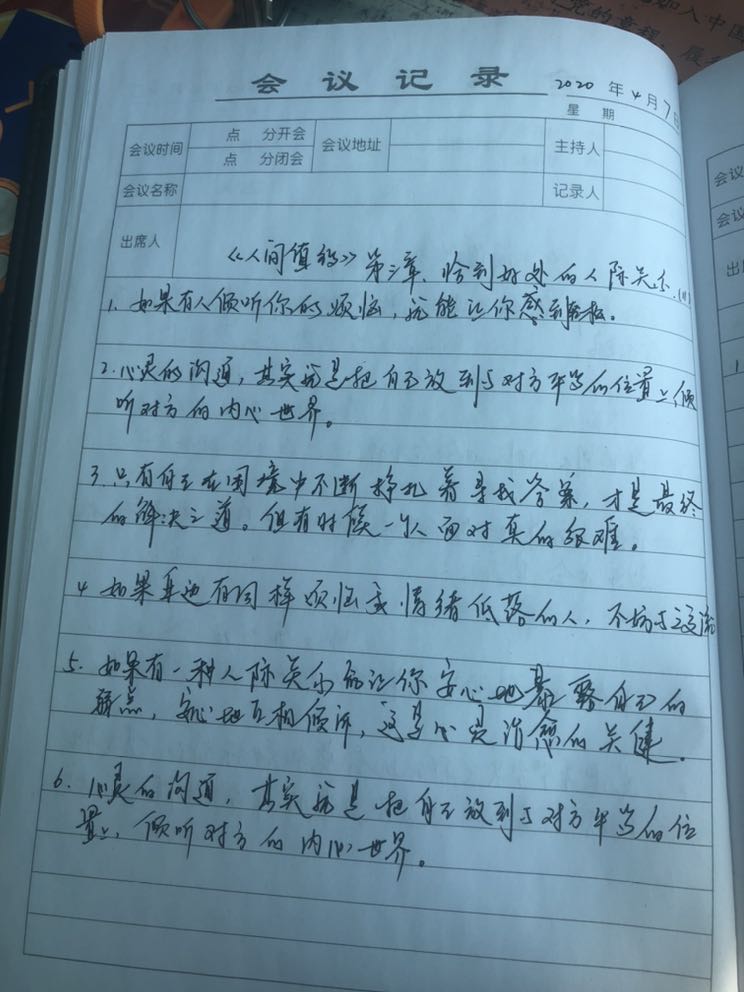 加入中国
党的章程,履
会议记录
2020年4月7日
星期
会议时间 点 分开会 会议地址 主持人
点 分闭会
会议名称 记录人
出席人
《人间值得》第三章、恰到好处的人际关系.
1、如果有人倾听你的烦恼,就能让你感到轻松。
2、心灵的沟通,其实就是把自己放到与对方平等的位置上,倾
听对方的内心世界。
3、只有自己在困境中不断挣扎着寻找答案,才是最终
的解决之道。但有时候一个人面对真的很难。
4 如果身边有同样烦恼或情绪低落的人,不妨与之交流
5、如果有一种人际关系能让你安心地暴露自己的
弱点,安心地互相倾诉,这是心灵治愈的关键.
6、心灵的沟通,其实就是把自己放到与对方平等的位
置上,倾听对方的内心世界。
会议
会议
出
1